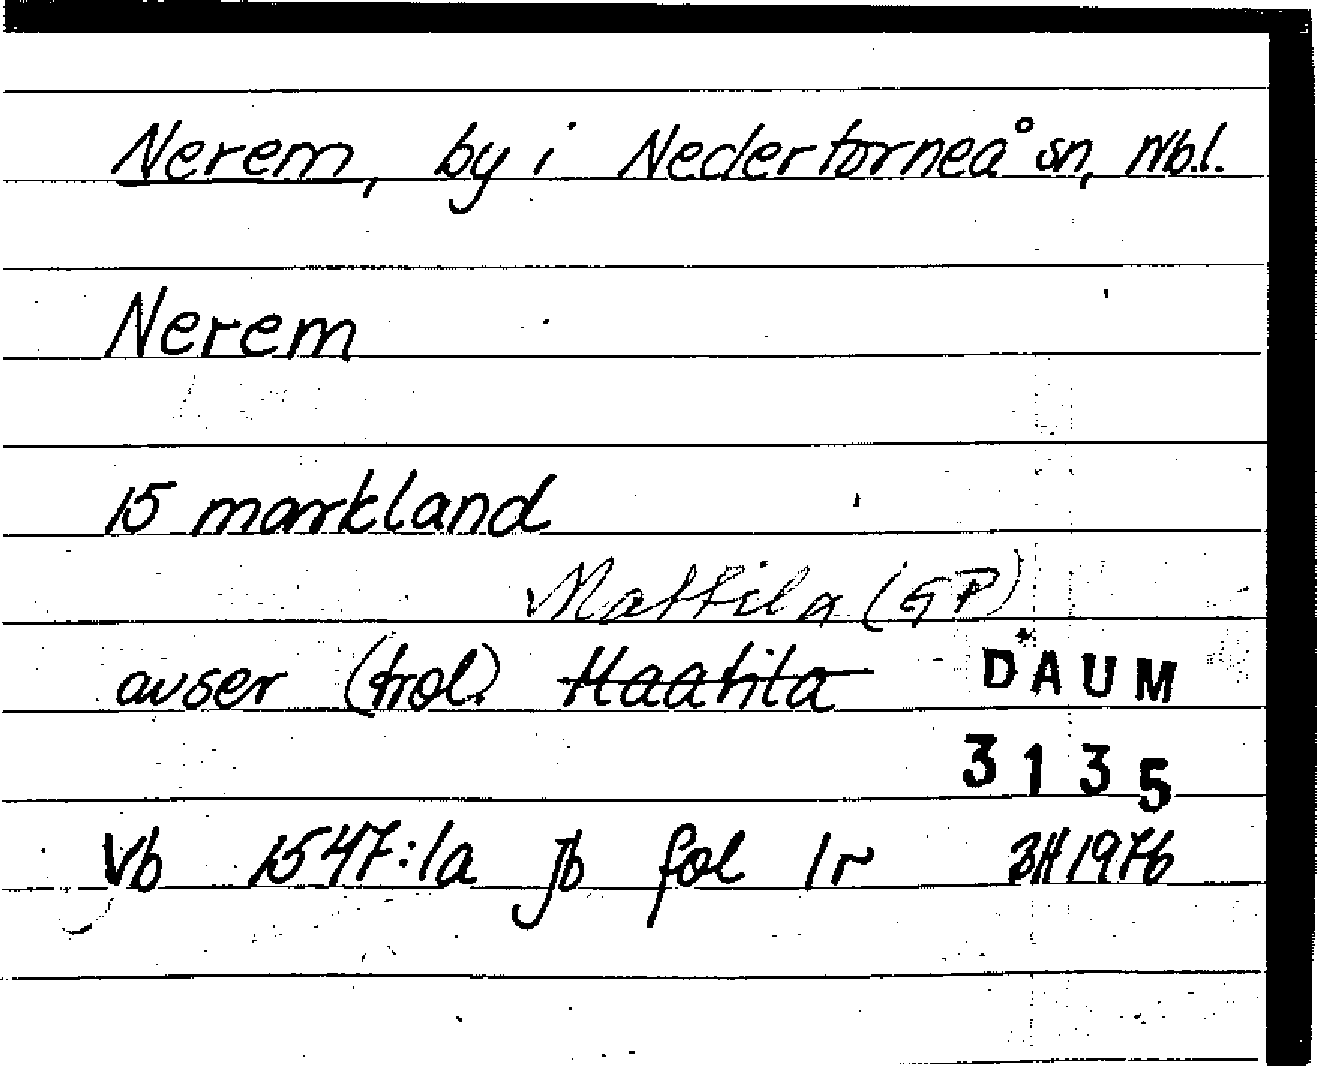 Nerem, by i Nedertorneå sn, Nb.l.
Nerem
15 markland
Mattila (GP)
avser (trol.) Haatila
DAUM
3135
Vb 1547:1a jb fol 1r
1976